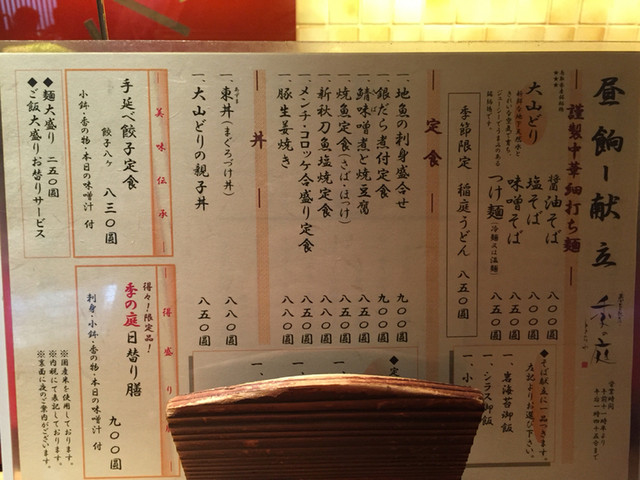 昼餉ー献立
季の庭
ときのにわ
営業時間
午前十一時半より
午後一時四十五分まで
謹製中華細打ち麺
大山どり
醤油そば 八〇〇圓
塩そば 八〇〇圓
味噌そば 八〇〇圓
つけ麺(冷麺又は温麺) 八五〇圓
季節限定 稲庭うどん 八五〇圓
◆そば献立に一品つきます。
左記よりお選び下さい。
一、岩海苔御飯
一、シラス御飯
一、小
定食
一、地魚の刺身盛合せ 九〇〇圓
一、銀だら煮付定食 九〇〇圓
一、鯖味噌煮と焼豆腐 八五〇圓
一、焼魚定食(さば・ほっけ) 八五〇圓
一、新秋刀魚塩焼定食 八五〇圓
一、メンチ・コロッケ合盛り定食 八八〇圓
一、豚生姜焼き 八八〇圓
◆定
丼
一、東丼(まぐろづけ丼) 八八〇圓
一、大山どりの親子丼 八五〇圓
美味伝承
手延べ餃子定食
餃子八ヶ 八三〇圓
小鉢・香の物・本日の味噌汁 付
得盛り
得々!限定品!
季の庭日替り膳
九〇〇圓
刺身・小鉢・香の物・本日の味噌汁 付
◆麺大盛り 二五〇圓
◆ご飯大盛りお替りサービス
※国産米を使用しております。
※内税にて表記しております。
※裏面に夜のご案内がございます。